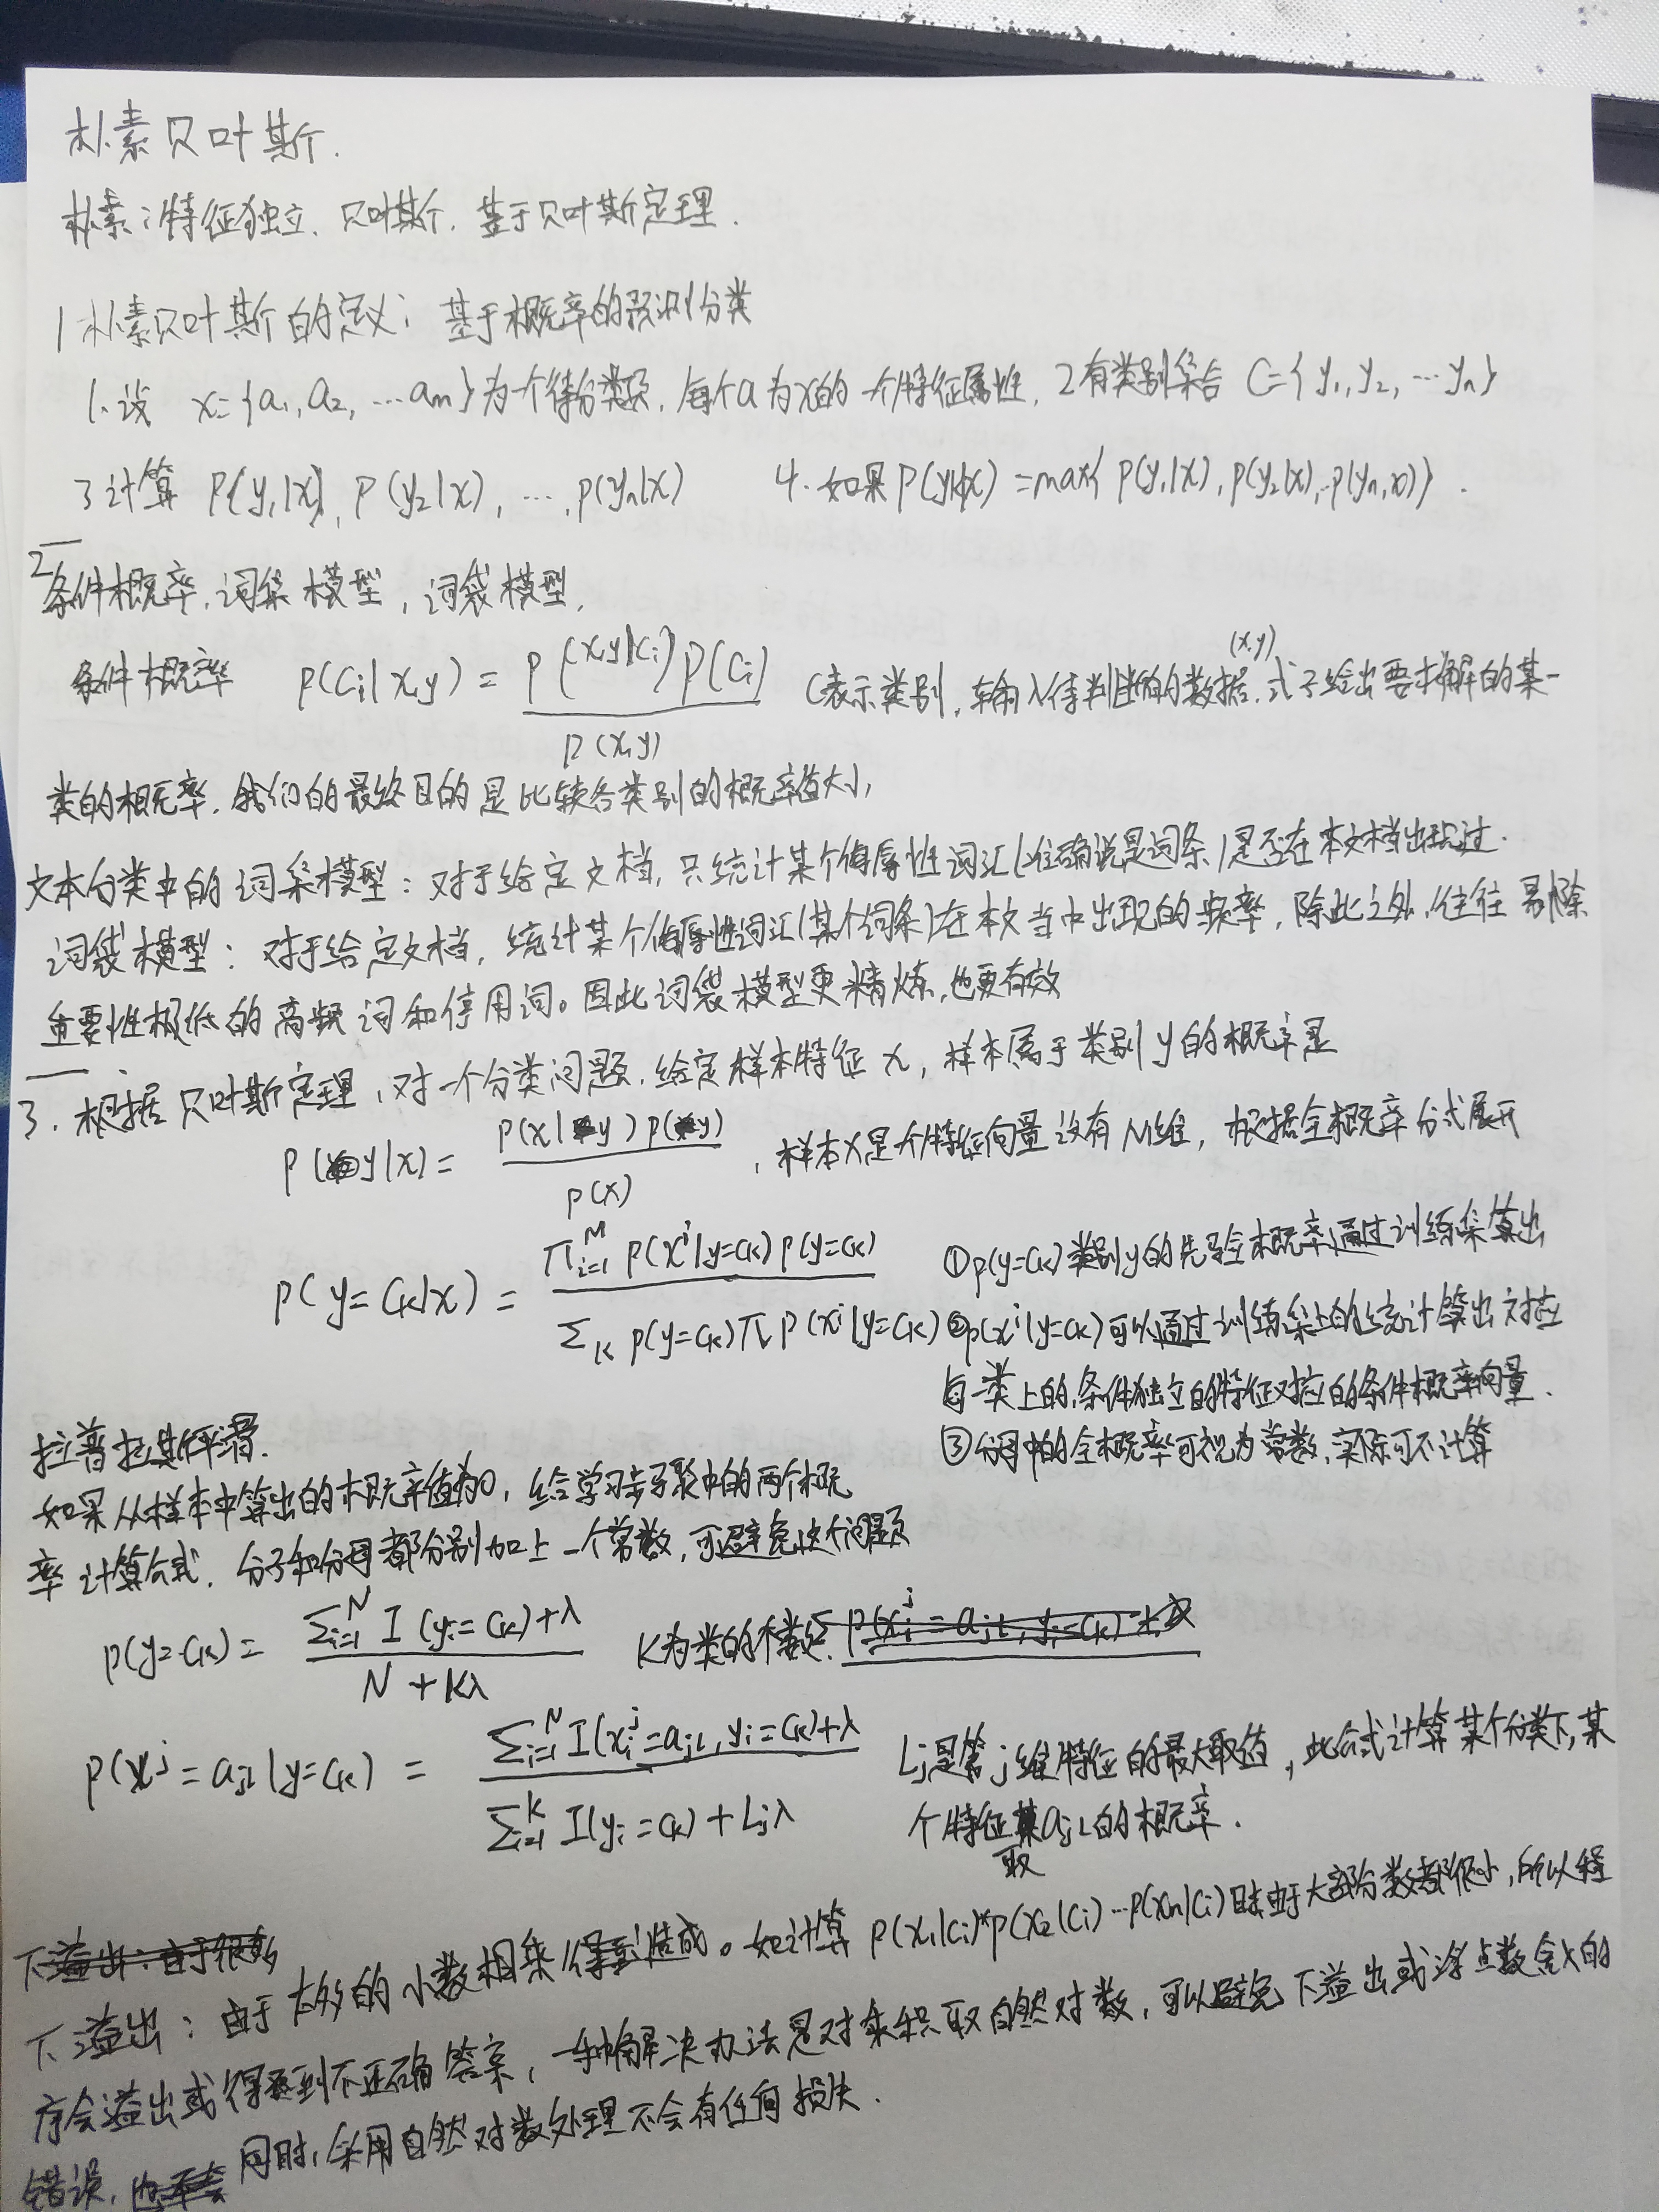 朴素贝叶斯.
朴素:特征独立、贝叶斯.基于贝叶斯定理.
1 朴素贝叶斯的定义:基于概率的预测分类
1.设 x={a1,a2,…am}为一个待分类项,每个a为x的一个特征属性,2有类别集合 C={y1,y2,…yn}
3计算 P(y1|x),P(y2|x),…,P(yn|x) 4.如果P(yk|x)=max{P(y1|x),P(y2|x),..P(yn,x)}.
2
条件概率.词集模型,词袋模型,
条件概率 P(Ci|x,y)= P(x,y|Ci)P(Ci) / P(x,y) C表示类别,输入待判断的数据(x,y).式子给出要求解的某一
类的概率.我们的最终目的是比较各类别的概率值大小,
文本分类中的词集模型:对于给定文档,只统计某个侮辱性词汇(准确说是词条)是否在本文档出现过.
词袋模型:对于给定文档,统计某个侮辱性词汇(某个词条)在本文当中出现的频率,除此之外,往往剔除
重要性极低的高频词和停用词。因此词袋模型更精炼,也更有效
3.根据贝叶斯定理,对一个分类问题.给定样本特征x,样本属于类别y的概率是
P(y|x)= P(x|y)P(y) / P(x) ,样本x是个特征向量设有M维,根据全概率公式展开
P(y=Ck|x)= ∏_{i=1}^{M} P(x^i|y=Ck)P(y=Ck) / Σ_k P(y=Ck)∏P(x^i|y=Ck)
①P(y=Ck)类别y的先验概率通过训练集算出
②P(x^i|y=Ck)可以通过训练集上的统计算出对应
每一类上的,条件独立的特征对应的条件概率向量.
③分母中的全概率可视为常数,实际可不计算
拉普拉斯平滑.
如果从样本中算出的概率值为0,给学习步骤中的两个概
率计算公式.分子和分母都分别加上一个常数,可避免这个问题
P(y=Ck)= Σ_{i=1}^{N} I(yi=Ck)+λ / N+Kλ K为类的个数.
P(x^j=ajl|y=Ck)= Σ_{i=1}^{N} I(xi^j=ajl,yi=Ck)+λ / Σ_{i=1}^{K} I(yi=Ck)+Ljλ Lj是第j维特征的最大取值,此公式计算某个分类下,某
个特征取ajl的概率.
下溢出:由于很多
下溢出:由于太多的小数相乘造成。如计算P(x1|ci)*P(x2|ci)…P(xn|ci)时由于大部分数都很小,所以程
序会溢出或得到不正确答案,一种解决办法是对乘积取自然对数,可以避免下溢出或浮点数舍入的
错误,同时,采用自然对数处理不会有任何损失.